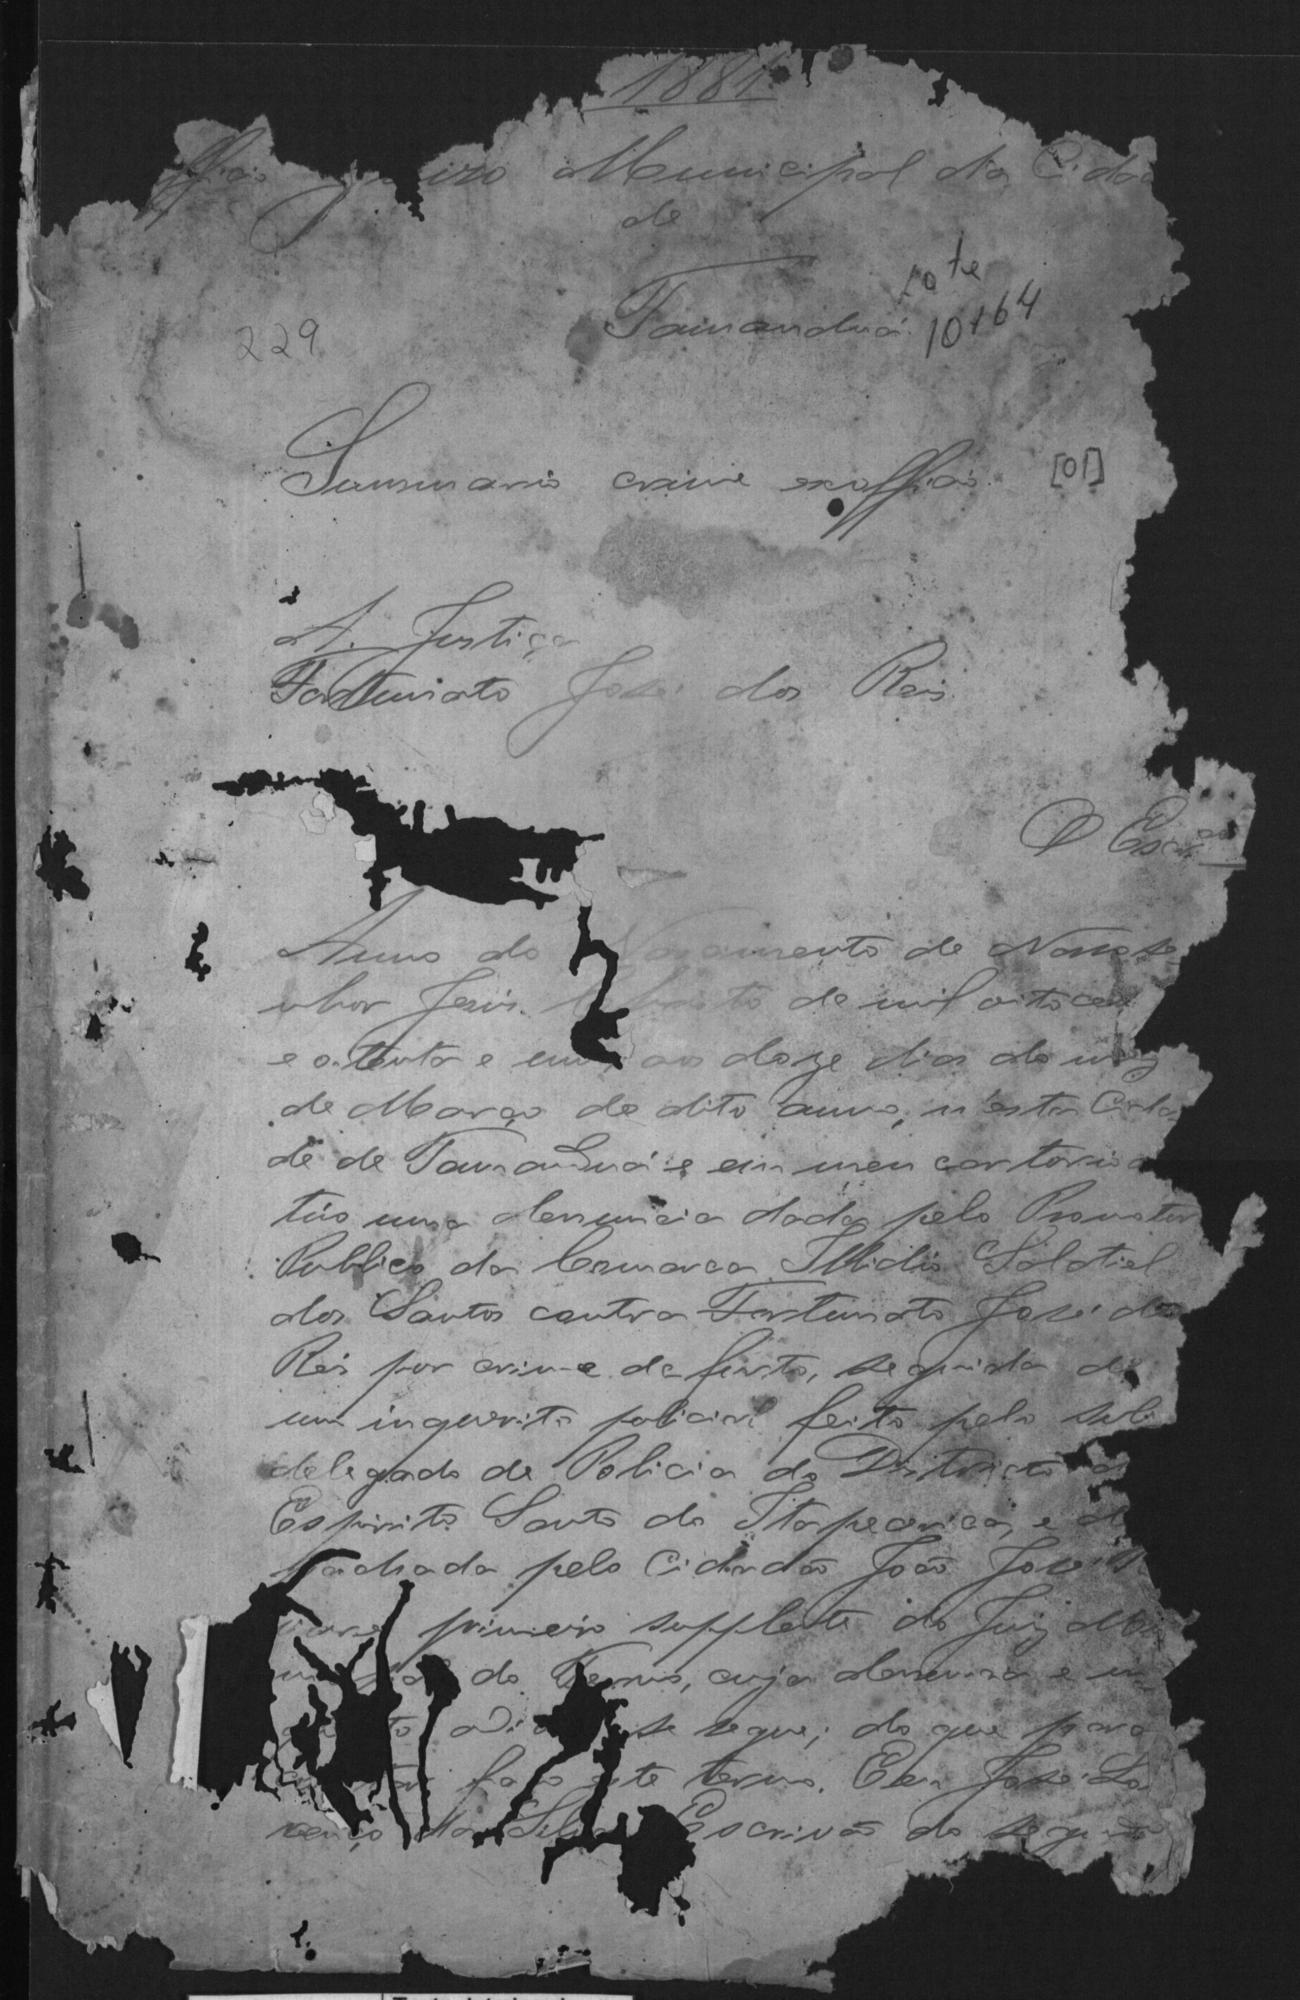 1881
Juizo Municipal da Cida
de
Tamanduá.
lote
10164
229
Summario crime exofficio.
[01]
A. Justiça
Fortunato José dos Reis
O Escrão
Anno do Nascimento de Nosso Se
nhor Jesus Christo de mil oito cen
e oitenta e um, aos doze dias do mez
de Março de dito anno, n'esta Cida
de de Tamanduá e em meu cartorio a
túo uma denuncia dada pelo Promotor
Publico da Comarca Illidio Salatiel
dos Santos contra Fortunato José dos
Reis por crime de furto, seguida de
um inquerito policial feito pelo sub
delegado de Policia do Districto
Espirito Santo do Itapecerica, e des
pachada pelo Cidadão João José
primeiro supplente do Juiz Mu
do Termo, cuja denuncia e in
to adiante se segue; do que para
faço este termo. Eu José Lo
renço da Silva Escrivão do segundo